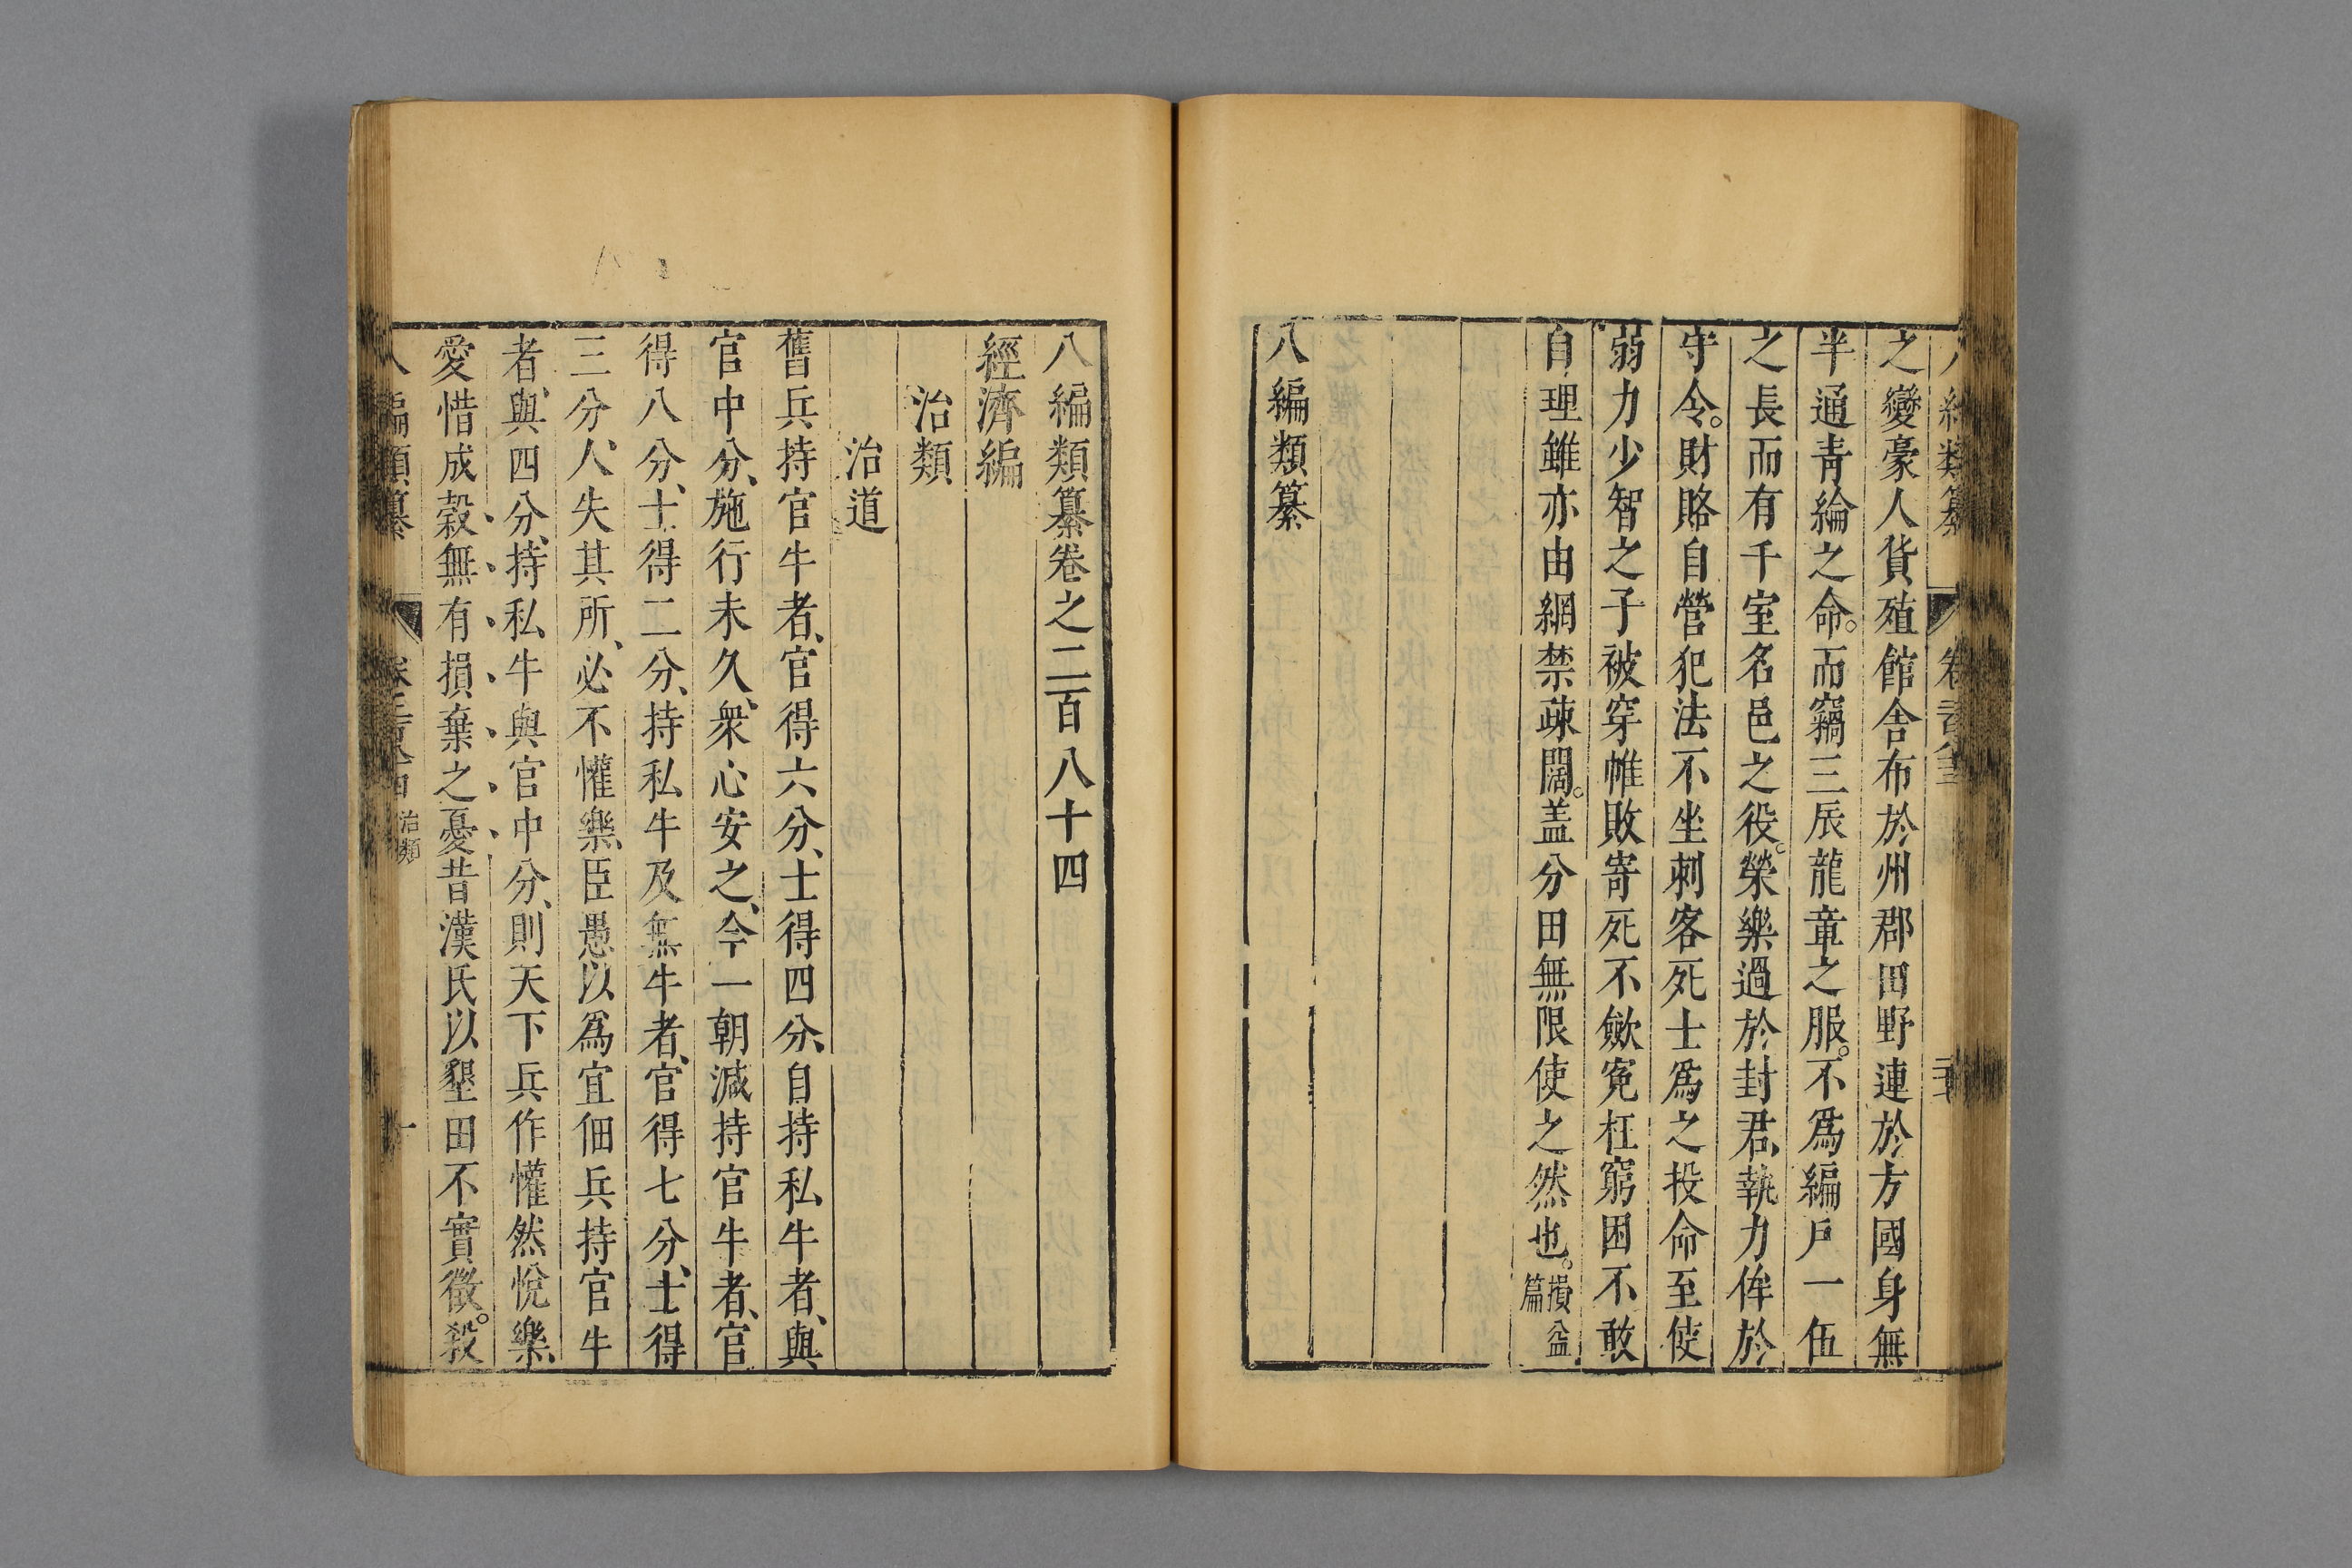 之變豪人貨殖館舍布於州郡田野連於方國身無
半通青綸之命。而竊三辰龍章之服。不爲編戶一伍
之長而有千室名邑之役。榮樂過於封君、執力侔於
守令。財賂自營犯法不坐刺客死士爲之投命至使
弱力少智之子被穿帷敗寄死不歛寃枉窮困不敢
自理雖亦由網禁疎闊。盖分田無限使之然也。損益篇
八編類纂
八編類纂卷之二百八十四
經濟編
治類
治道
舊兵持官牛者、官得六分、士得四分、自持私牛者、與
官中分、施行未久、衆心安之、今一朝減持官牛者、官
得八分、士得二分、持私牛及無牛者、官得七分、士得
三分、人失其所、必不懽樂、臣愚以爲宜佃兵持官牛
者、與四分、持私牛與官中分、則天下兵作懽然悅樂、
愛惜成穀無有損棄之憂昔漢氏以墾田不實徵。殺